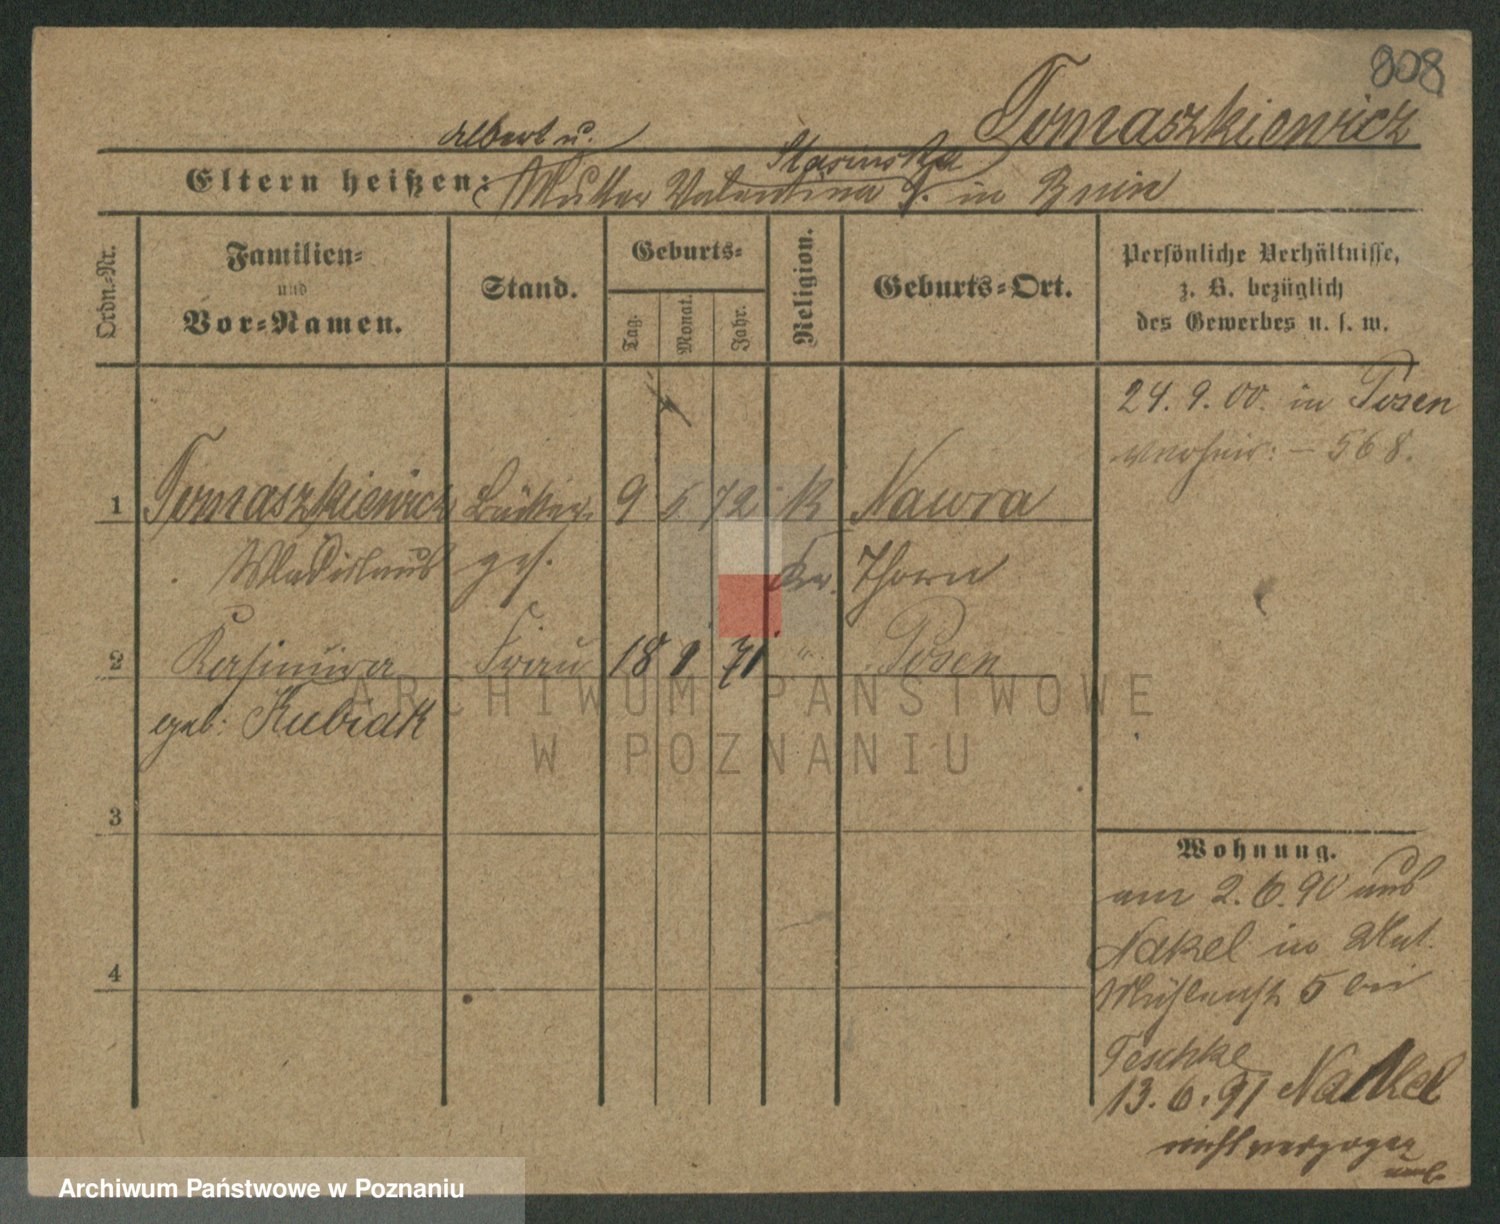 808
Tomaszkiewicz
Albert u.
Stasinska
Eltern heißen: Mutter Valentina g. in Bnin
Ordn.-Nr.
Familien-
und
Vor-Namen.
Stand.
Geburts-
Tag.
Monat.
Jahr.
Religion.
Geburts-Ort.
Persönliche Verhältnisse,
z. B. bezüglich
des Gewerbes u. s. w.
24. 9. 00. in Posen
verheir: – 568.
1 Tomaszkiewicz Bäcker 9 5 72 K Nawra
Wladislaus ges. Kr. Thorn
2 Kasimira Frau 18 1 71 " Posen
geb: Kubiak
3
4
Wohnung.
am 2. 6. 90 aus
Nakel in
Mühlenstr 5 bei
Teschke
13. 6. 91 Nakel
nicht verzogen
ARCHIWUM PAŃSTWOWE
W POZNANIU
Archiwum Państwowe w Poznaniu